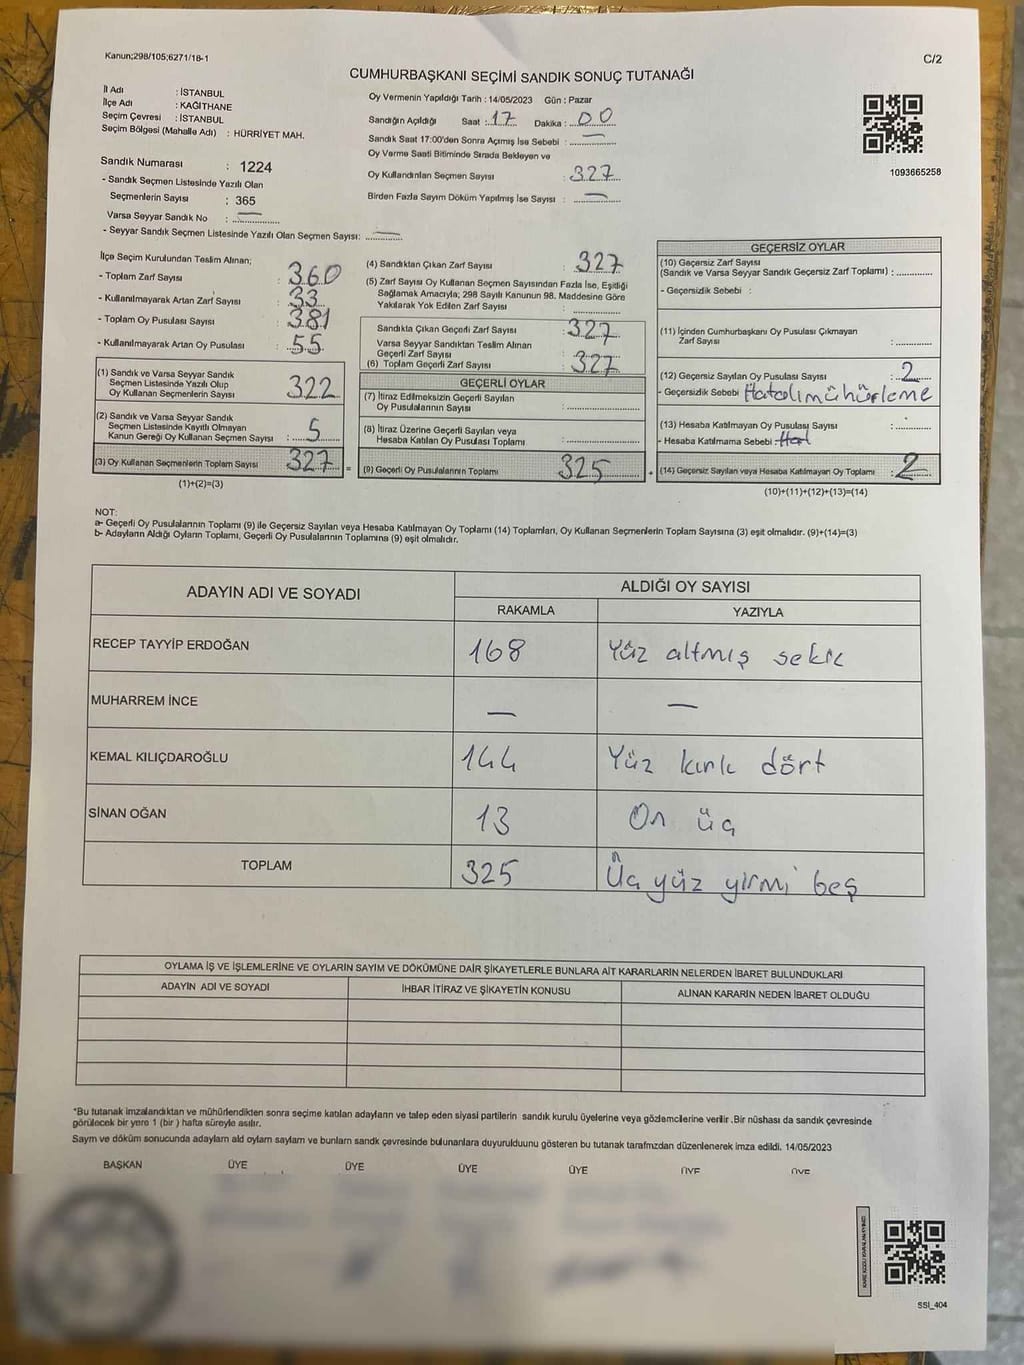 Kanun;298/105;6271/18-1
C/2
CUMHURBAŞKANI SEÇİMİ SANDIK SONUÇ TUTANAĞI
İl Adı : İSTANBUL
İlçe Adı : KAĞITHANE
Seçim Çevresi : İSTANBUL
Seçim Bölgesi (Mahalle Adı) : HÜRRİYET MAH.
Sandık Numarası : 1224
- Sandık Seçmen Listesinde Yazılı Olan
Seçmenlerin Sayısı : 365
Varsa Seyyar Sandık No : —
- Seyyar Sandık Seçmen Listesinde Yazılı Olan Seçmen Sayısı: —
Oy Vermenin Yapıldığı Tarih : 14/05/2023 Gün : Pazar
Sandığın Açıldığı Saat : 17 Dakika : 00
Sandık Saat 17:00'den Sonra Açmış İse Sebebi : —
Oy Verme Saati Bitiminde Sırada Bekleyen ve
Oy Kullandırılan Seçmen Sayısı : 327
Birden Fazla Sayım Döküm Yapılmış İse Sayısı : —
1093665258
İlçe Seçim Kurulundan Teslim Alınan;
- Toplam Zarf Sayısı : 360
- Kullanılmayarak Artan Zarf Sayısı : 33
- Toplam Oy Pusulası Sayısı : 381
- Kullanılmayarak Artan Oy Pusulası : 55
(1) Sandık ve Varsa Seyyar Sandık
Seçmen Listesinde Yazılı Olup
Oy Kullanan Seçmenlerin Sayısı 322
(2) Sandık ve Varsa Seyyar Sandık
Seçmen Listesinde Kayıtlı Olmayan
Kanun Gereği Oy Kullanan Seçmen Sayısı : 5
(3) Oy Kullanan Seçmenlerin Toplam Sayısı 327
(1)+(2)=(3)
(4) Sandıktan Çıkan Zarf Sayısı : 327
(5) Zarf Sayısı Oy Kullanan Seçmen Sayısından Fazla İse, Eşitliği
Sağlamak Amacıyla; 298 Sayılı Kanunun 98. Maddesine Göre
Yakılarak Yok Edilen Zarf Sayısı
Sandıkta Çıkan Geçerli Zarf Sayısı : 327
Varsa Seyyar Sandıktan Teslim Alınan
Geçerli Zarf Sayısı
(6) Toplam Geçerli Zarf Sayısı : 327
GEÇERLİ OYLAR
(7) İtiraz Edilmeksizin Geçerli Sayılan
Oy Pusulalarının Sayısı :
(8) İtiraz Üzerine Geçerli Sayılan veya
Hesaba Katılan Oy Pusulası Toplamı :
= (9) Geçerli Oy Pusulalarının Toplamı 325 +
GEÇERSİZ OYLAR
(10) Geçersiz Zarf Sayısı
(Sandık ve Varsa Seyyar Sandık Geçersiz Zarf Toplamı) :
- Geçersizlik Sebebi :
(11) İçinden Cumhurbaşkanı Oy Pusulası Çıkmayan
Zarf Sayısı :
(12) Geçersiz Sayılan Oy Pusulası Sayısı : 2
- Geçersizlik Sebebi Hatalı mühürleme
(13) Hesaba Katılmayan Oy Pusulası Sayısı :
- Hesaba Katılmama Sebebi :
(14) Geçersiz Sayılan veya Hesaba Katılmayan Oy Toplamı : 2
(10)+(11)+(12)+(13)=(14)
NOT:
a- Geçerli Oy Pusulalarının Toplamı (9) ile Geçersiz Sayılan veya Hesaba Katılmayan Oy Toplamı (14) Toplamları, Oy Kullanan Seçmenlerin Toplam Sayısına (3) eşit olmalıdır. (9)+(14)=(3)
b- Adayların Aldığı Oyların Toplamı, Geçerli Oy Pusulalarının Toplamına (9) eşit olmalıdır.
ADAYIN ADI VE SOYADI ALDIĞI OY SAYISI
RAKAMLA YAZIYLA
RECEP TAYYİP ERDOĞAN 168 Yüz altmış sekiz
MUHARREM İNCE — —
KEMAL KILIÇDAROĞLU 144 Yüz kırk dört
SİNAN OĞAN 13 On üç
TOPLAM 325 Üç yüz yirmi beş
OYLAMA İŞ VE İŞLEMLERİNE VE OYLARIN SAYIM VE DÖKÜMÜNE DAİR ŞİKAYETLERLE BUNLARA AİT KARARLARIN NELERDEN İBARET BULUNDUKLARI
ADAYIN ADI VE SOYADI İHBAR İTİRAZ VE ŞİKAYETİN KONUSU ALINAN KARARIN NEDEN İBARET OLDUĞU
*Bu tutanak imzalandıktan ve mühürlendikten sonra seçime katılan adayların ve talep eden siyasi partilerin sandık kurulu üyelerine veya gözlemcilerine verilir .Bir nüshası da sandık çevresinde
görülecek bir yere 1 (bir ) hafta süreyle asılır.
Sayım ve döküm sonucunda adayların ald oyların sayları ve bunların sandk çevresinde bulunanlara duyurulduunu gösteren bu tutanak tarafmzdan düzenlenerek imza edildi. 14/05/2023
BAŞKAN ÜYE ÜYE ÜYE ÜYE ÜYE ÜYE
SSI_404